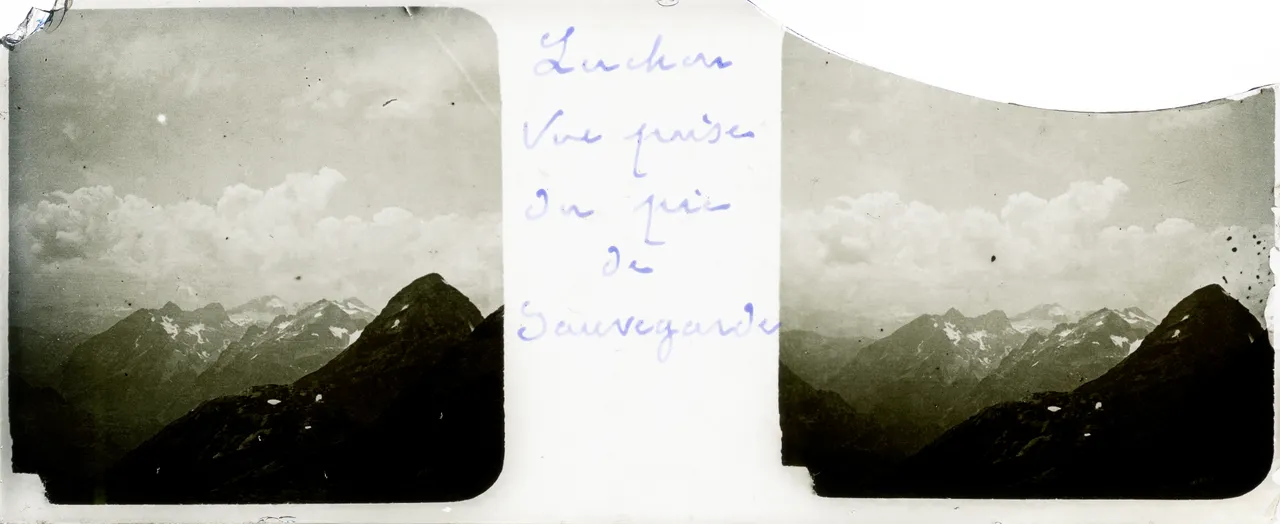 Luchon
Vue prise
du pic
de
Sauvegarde